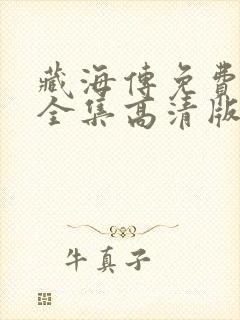 藏海传免費
全集高清版
牛真子